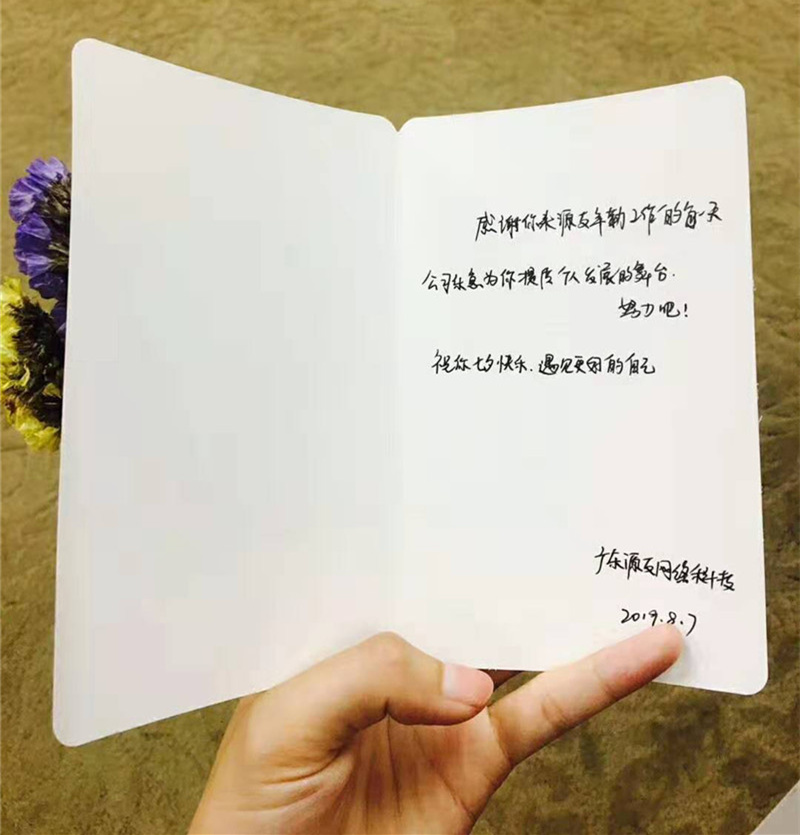 感谢你来源友辛勤工作的每一天
公司乐意为你提供个人发展的舞台.
努力吧!
祝你七夕快乐.遇见更好的自己
广东源互网络科技
2019.8.7